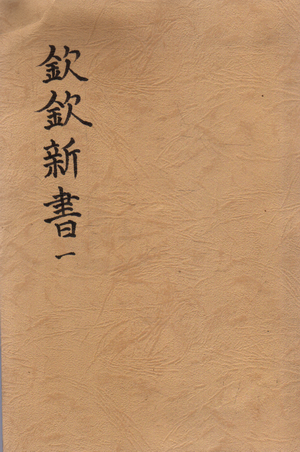 欽欽新書一